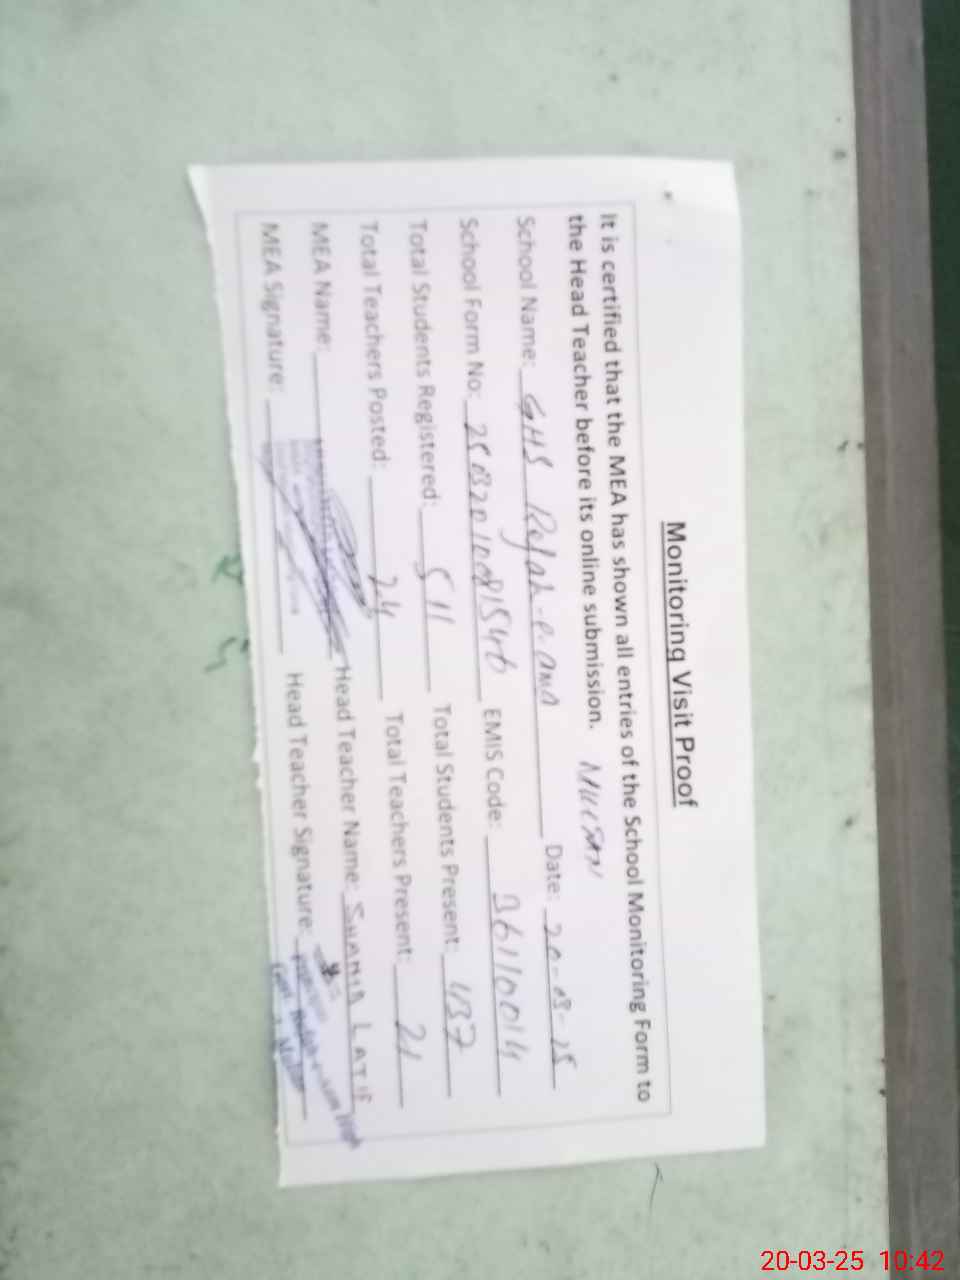 Monitoring Visit Proof
It is certified that the MEA has shown all entries of the School Monitoring Form to
the Head Teacher before its online submission.
School Name: GHS Date: 20-03-25
School Form No: EMIS Code: 36110014
Total Students Registered: 511 Total Students Present: 437
Total Teachers Posted: 24 Total Teachers Present: 21
MEA Name: Head Teacher Name: LATIF
MEA Signature: Head Teacher Signature:
20-03-25 10:42